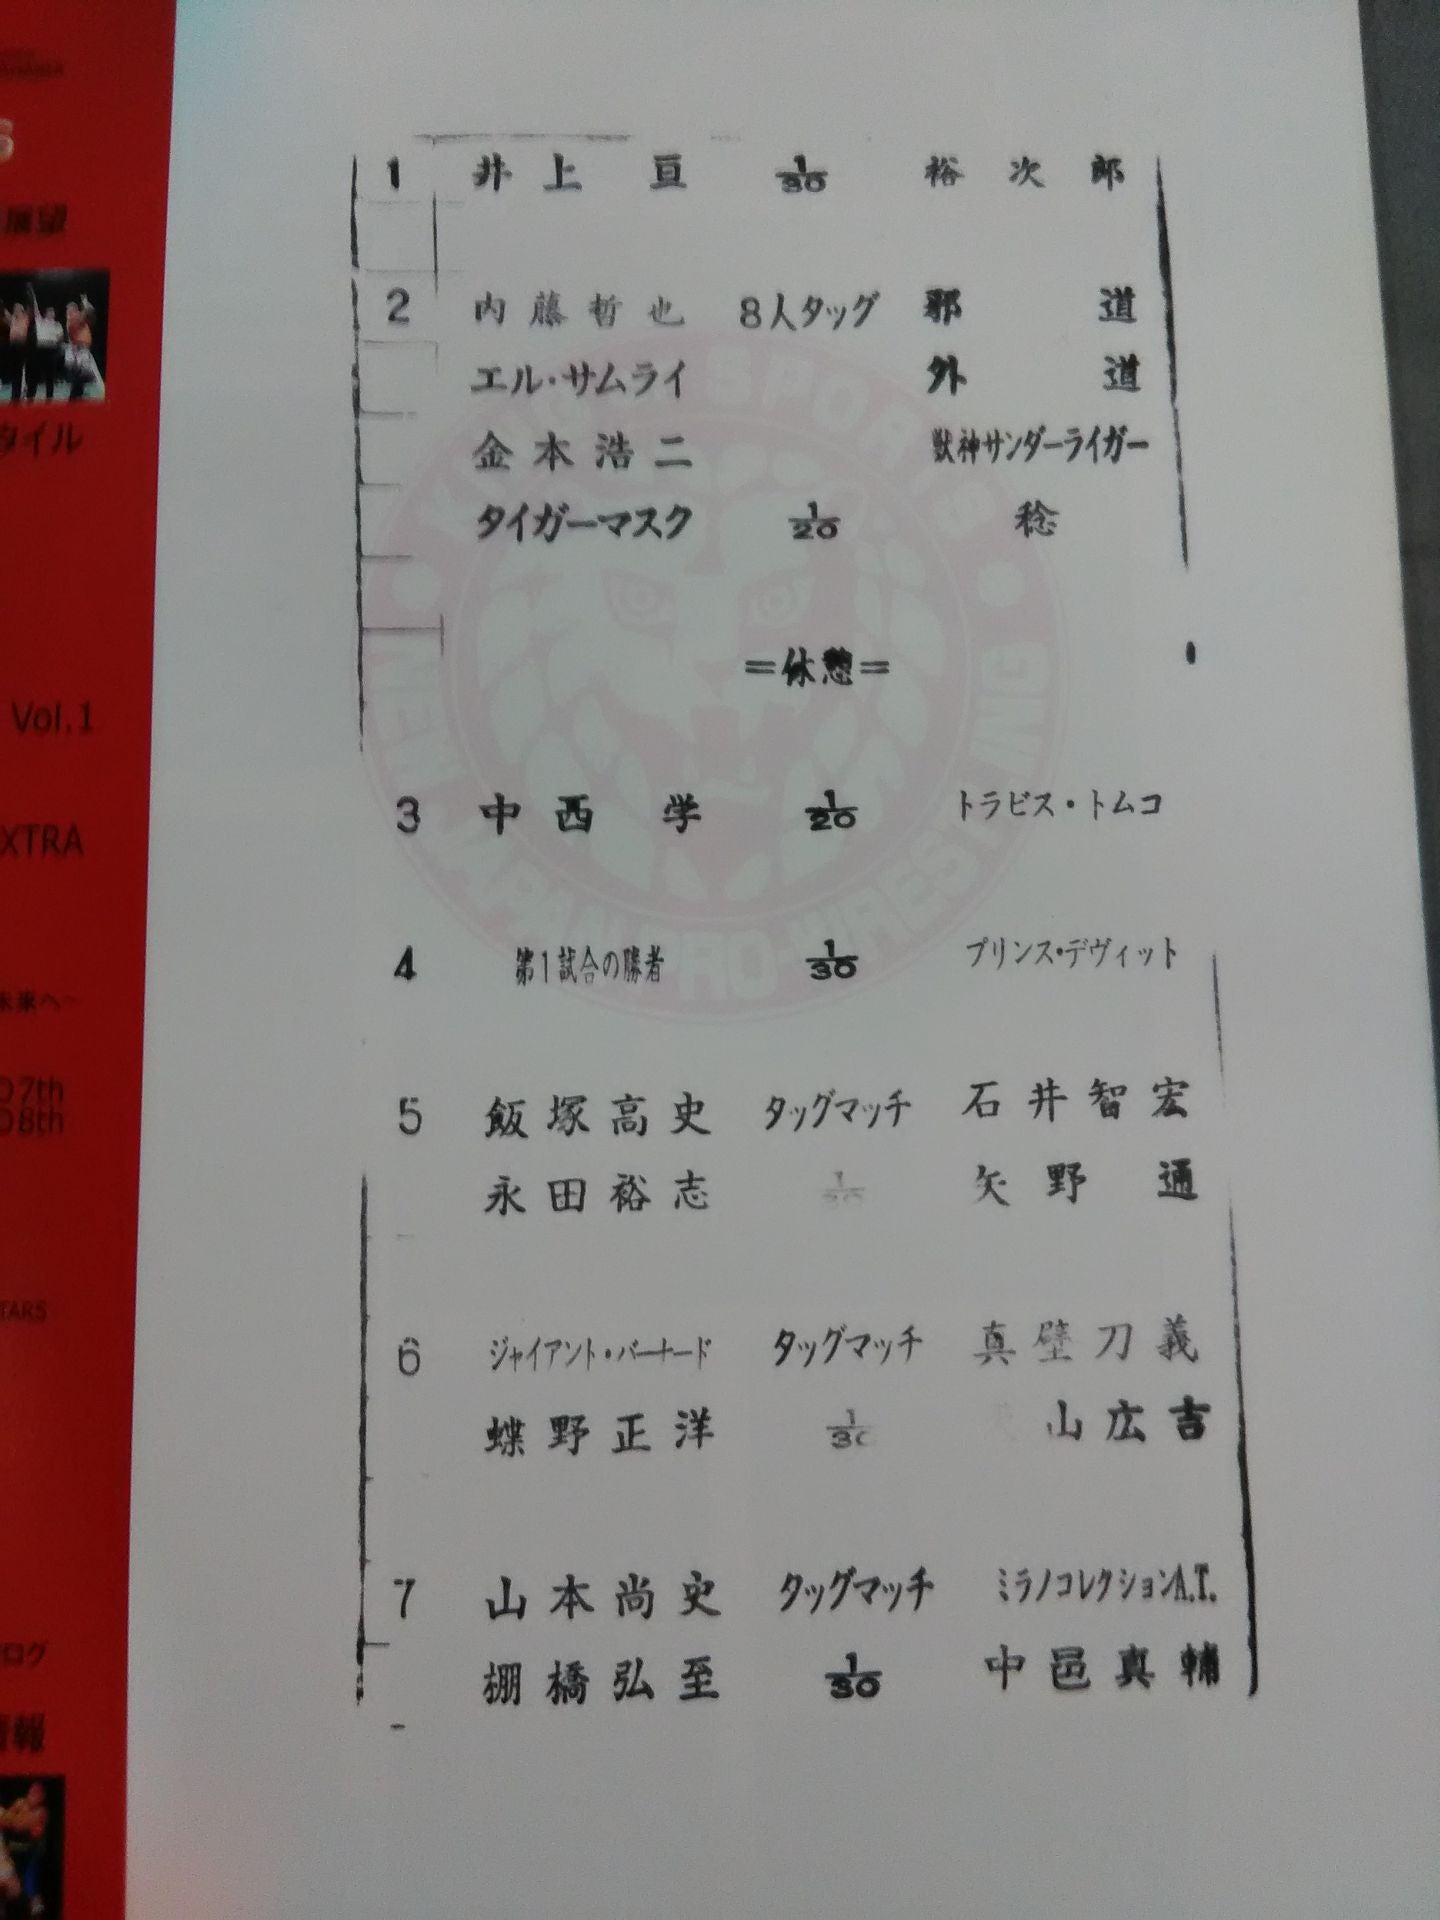 展望
タイル
Vol.1
XTRA
未来へ〜
07th
08th
TARS
ログ
情報
1 井上 亘 1/30 裕次郎
2 内藤哲也 8人タッグ 邪道
エル・サムライ 外道
金本浩二 獣神サンダーライガー
タイガーマスク 1/20 稔
=休憩=
3 中西 学 1/20 トラビス・トムコ
4 第1試合の勝者 1/30 プリンス・デヴィット
5 飯塚高史 タッグマッチ 石井智宏
永田裕志 1/30 矢野 通
6 ジャイアント・バーナード タッグマッチ 真壁刀義
蝶野正洋 1/30 山広吉
7 山本尚史 タッグマッチ ミラノコレクションA.T.
棚橋弘至 1/30 中邑真輔
KING OF SPORTS
NEW JAPAN PRO-WRESTLING